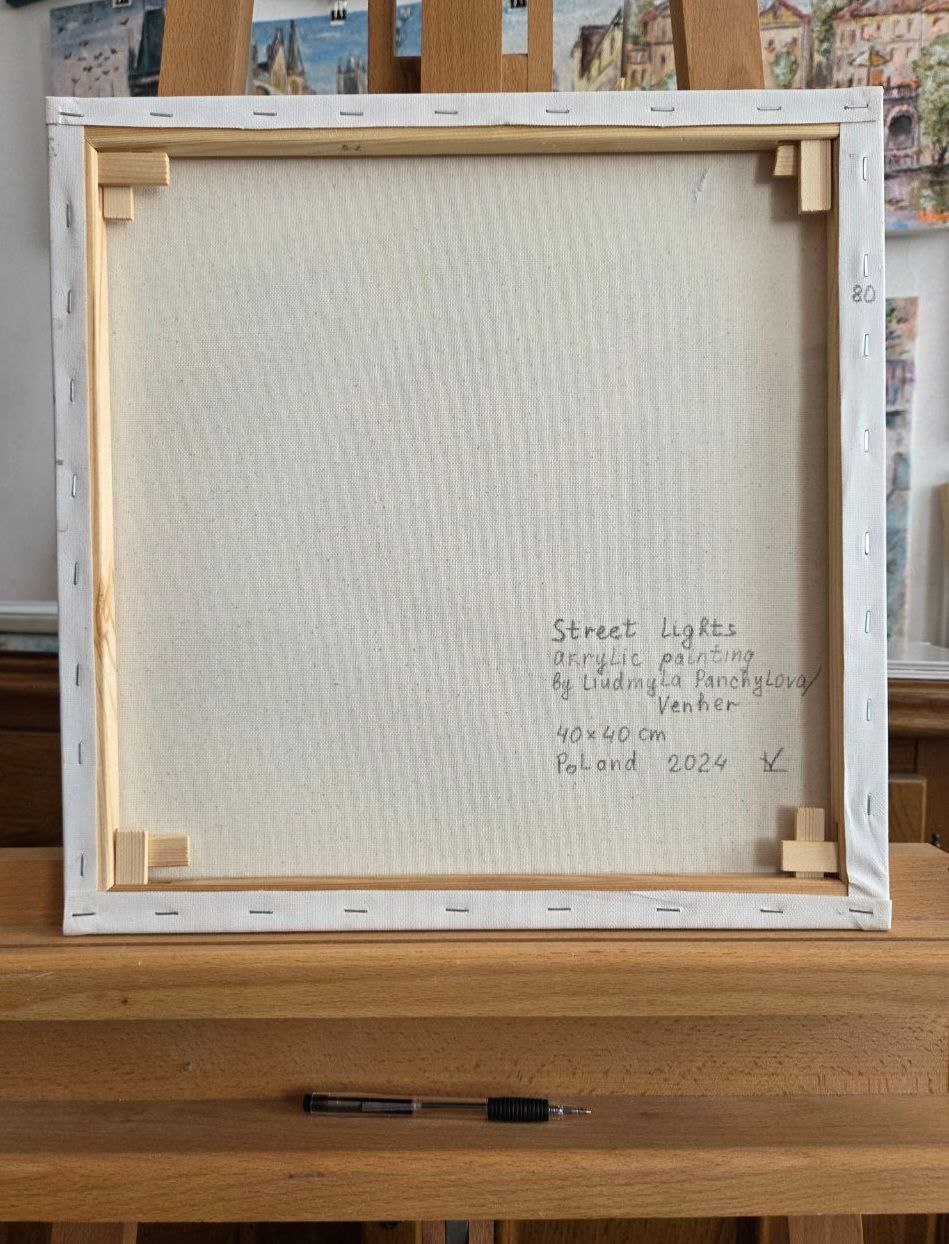 80
Street Lights
akrylic painting
By Liudmyla Panchylova/
Venher
40×40 cm
Poland 2024